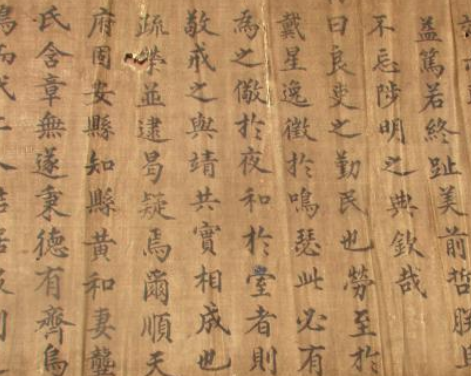 益篤若終趾美前哲
不忘陟明之典欽哉
曰良吏之勤民也勞至於
戴星逸徵於鳴瑟此必有
為之儆於夜和於堂者則
敬戒之與靖共實相成也
疏榮並逮曷疑焉爾順天
府固安縣知縣黃和妻龔
氏含章無遂秉德有齊